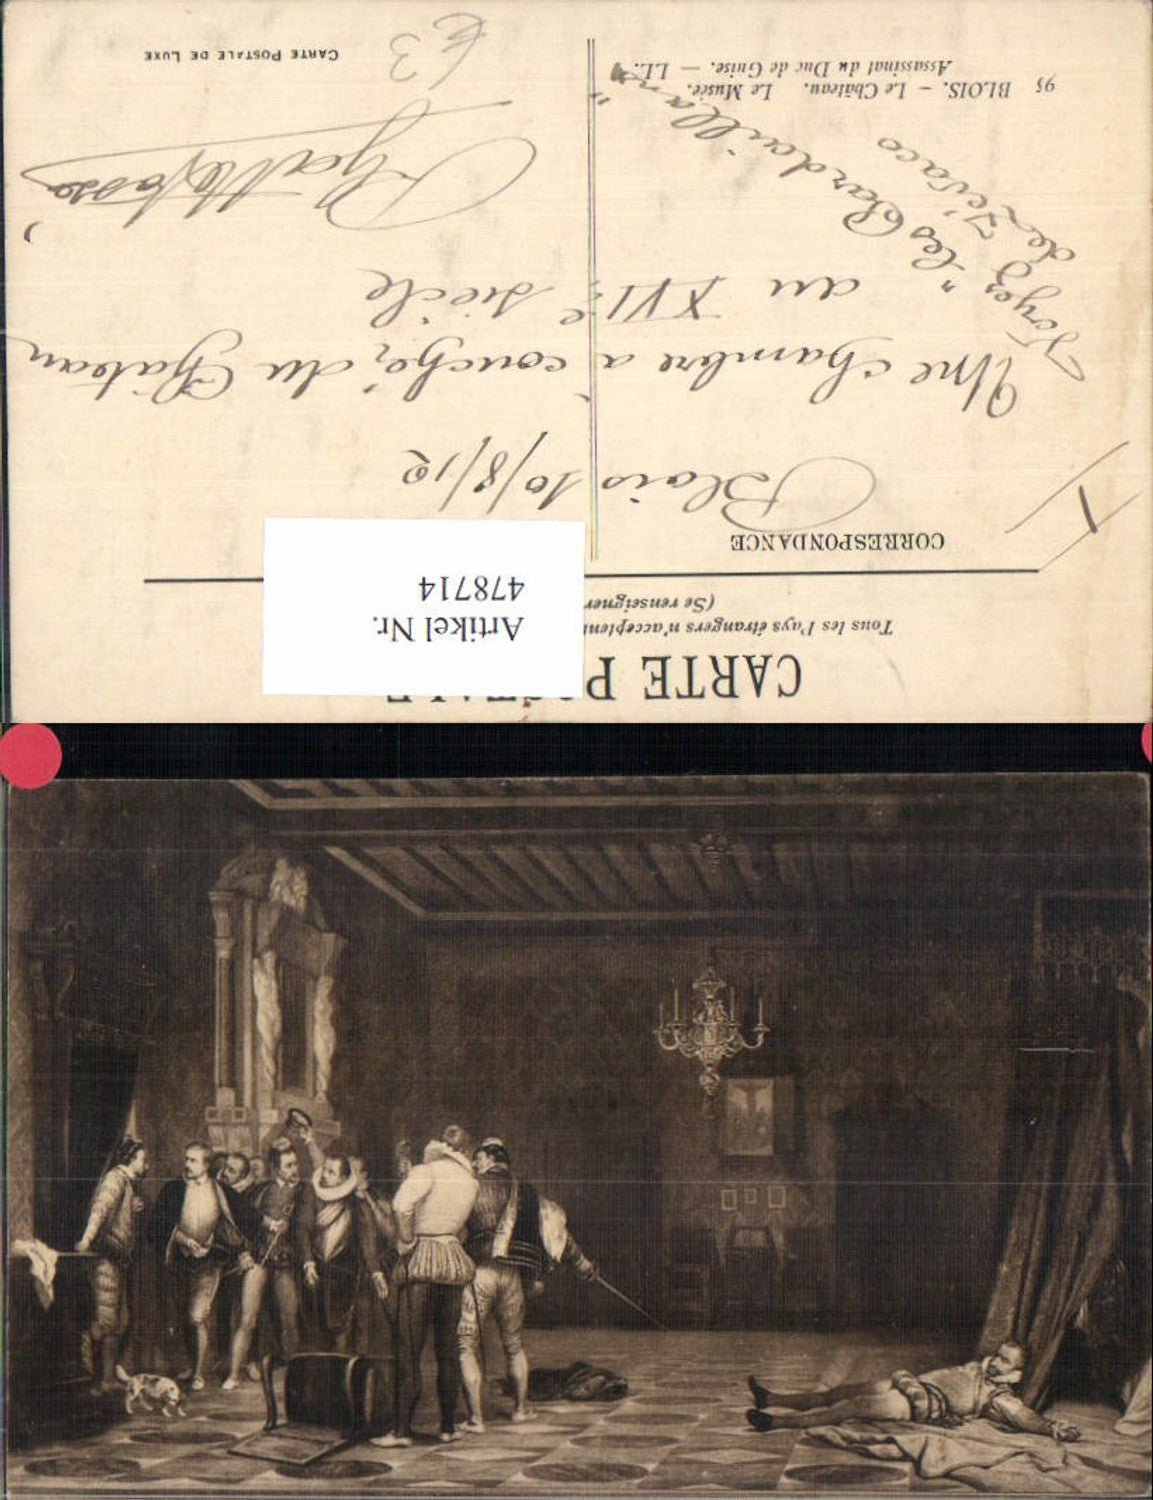 CARTE POSTALE
Tous les Pays étrangers n'acceptent
(Se renseigner
Artikel Nr.
478714
CORRESPONDANCE
Blois 10/8/12
Une chambre à coucher du Château
au XVIe siècle
Voyez "les Pardaillan"
de Zévaco
95 BLOIS. – Le Château. Le Musée.
Assassinat du Duc de Guise. — LL.
63
CARTE POSTALE DE LUXE